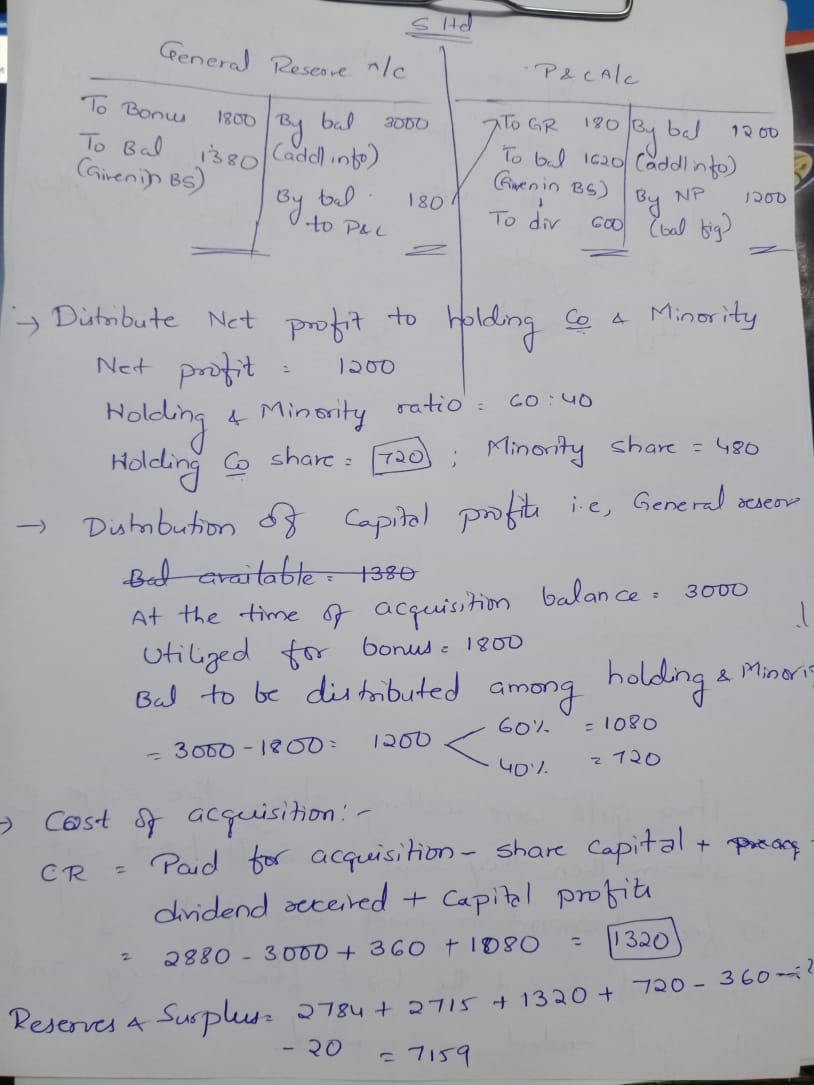 S ltd
General Reseove A/C
P & C A/c
To Bonus 1800 By bal 3000
To Bal 1380 (addl info)
(Given in BS)
By bal 180
to P&L
To GR 180 By bal 1200
To bal 1620 (addl info)
(Given in BS) By NP 1200
To div 600 (bal fig)
→ Distribute Net profit to holding Co & Minority
Net profit = 1200
Holding & Minority ratio = 60:40
Holding Co share = 720 ; Minority share = 480
→ Distribution of Capital profits i.e, General reserv
Bal available = 1380
At the time of acquisition balance = 3000
Utilized for bonus = 1800
Bal to be distributed among holding & Minori
= 3000 - 1800 = 1200 60% = 1080
40% = 720
→ Cost of acquisition:-
CR = Paid for acquisition - share capital + pre acq
dividend received + Capital profits
= 2880 - 3000 + 360 + 1080 = 1320
Reserves & Surplus = 2784 + 2715 + 1320 + 720 - 360
- 20 = 7159